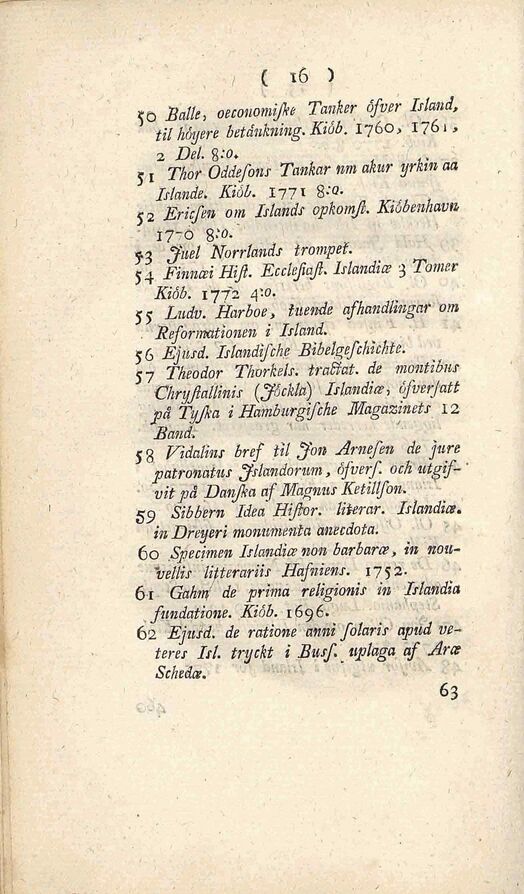 ( 16 )
50 Balle, oeconomiſke Tanker öfver Island,
til höyere betänkning. Kiöb. 1760, 1761,
2 Del. 8:o.
51 Thor Oddeſons Tankar nm akur yrkin aa
Islande. Kiöb. 1771 8:o.
52 Ericſen om Islands opkomſt. Kiöbenhavn
1770 8:o.
53 Juel Norrlands trompet.
54 Finnæi Hiſt. Eccleſiaſt. Islandiæ 3 Tomer
Kiöb. 1772 4:o.
55 Ludv. Harboe, tuende afhandlingar om
Reformationen i Island.
56 Ejusd. Islandiſche Bibelgeſchichte.
57 Theodor Thorkels. tractat. de montibus
Chryſtallinis (Jöckla) Islandiæ, öfverſatt
på Tyſka i Hamburgiſche Magazinets 12
Band.
58 Vidalins bref til Jon Arneſen de jure
patronatus Jslandorum, öfverſ. och utgif-
vit på Danſka af Magnus Ketillſon.
59 Sibbern Idea Hiſtor. literar. Islandiæ.
in Dreyeri monumenta anecdota.
60 Specimen Islandiæ non barbaræ, in nou-
vellis litterariis Hafniens. 1752.
61 Gahm de prima religionis in Islandia
fundatione. Kiöb. 1696.
62 Ejusd. de ratione anni ſolaris apud ve-
teres Isl. tryckt i Busſ. uplaga af Aræ
Schedæ.
63